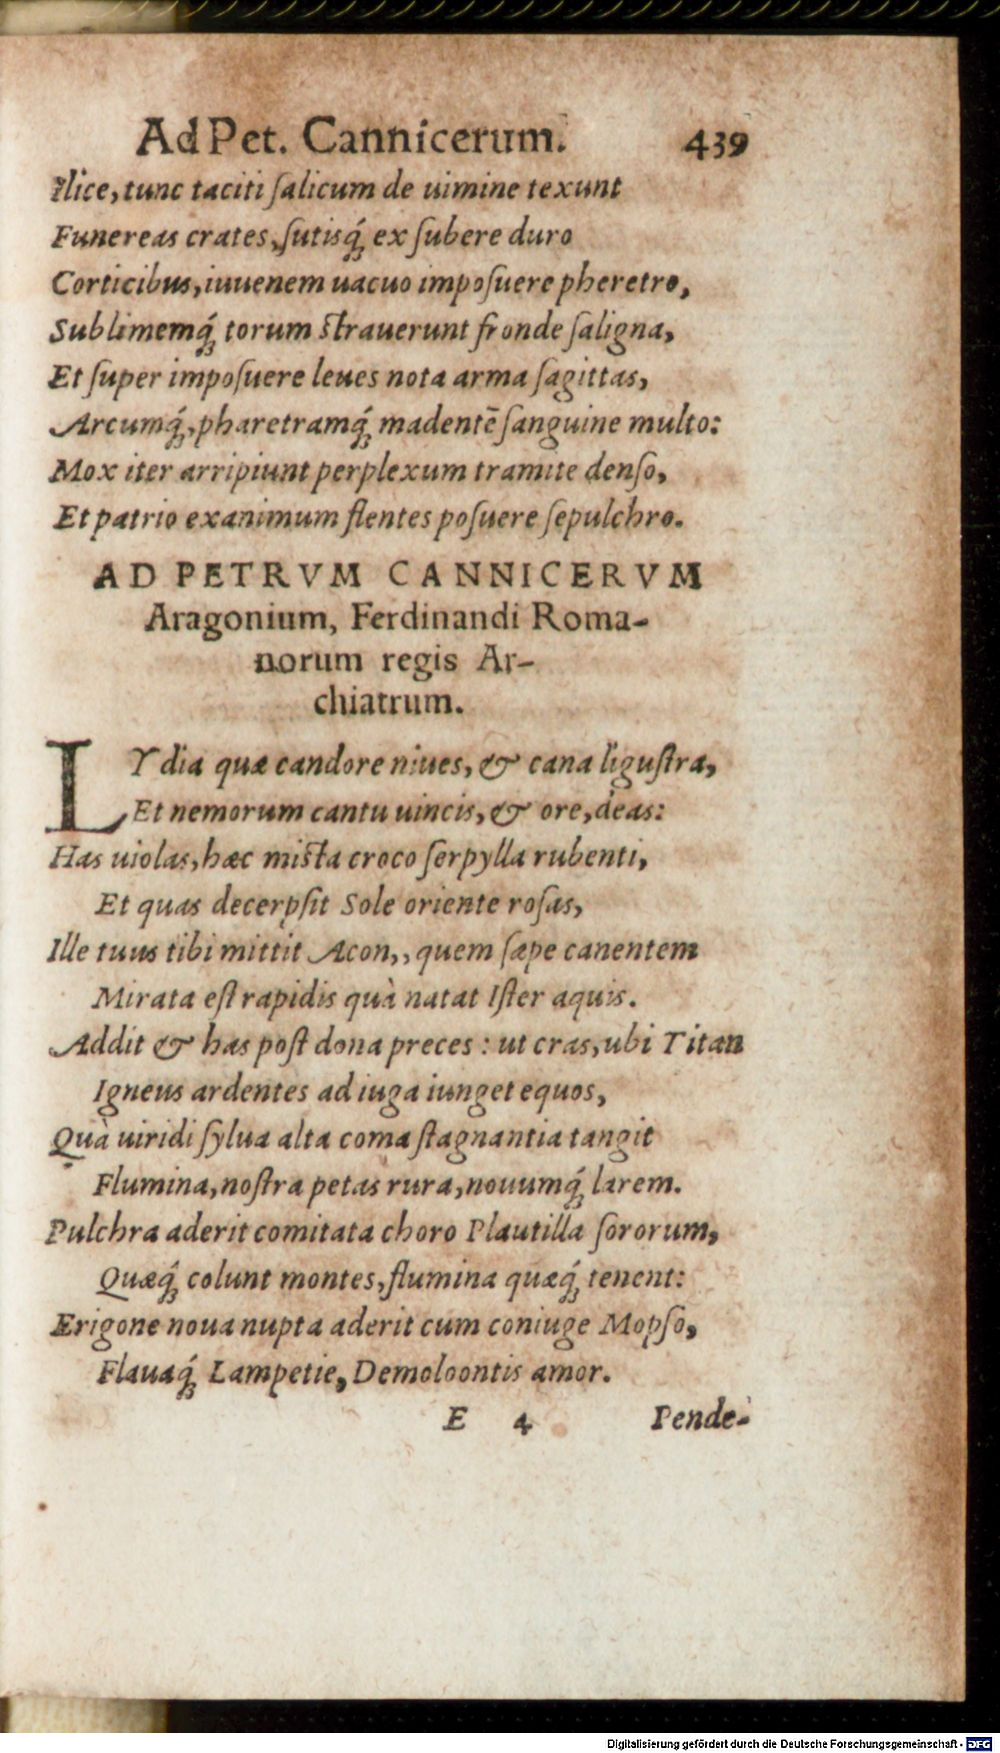 Ad Pet. Cannicerum. 439
Ilice, tunc taciti ſalicum de uimine texunt
Funereas crates, ſutisq́ue ex ſubere duro
Corticibus, iuuenem uacuo impoſuere pheretro,
Sublimemq́ue torum ſtrauerunt fronde ſaligna,
Et ſuper impoſuere leues nota arma ſagittas,
Arcumq́ue, pharetramq́ue madentē ſanguine multo:
Mox iter arripiunt perplexum tramite denſo,
Et patrio exanimum flentes poſuere ſepulchro.
AD PETRVM CANNICERVM
Aragonium, Ferdinandi Roma-
norum regis Ar-
chiatrum.
LYdia quæ candore niues, & cana liguſtra,
Et nemorum cantu uincis, & ore, deas:
Has uiolas, hæc miſta croco ſerpylla rubenti,
Et quas decerpſit Sole oriente roſas,
Ille tuus tibi mittit Acon,, quem ſæpe canentem
Mirata eſt rapidis quà natat Iſter aquis.
Addit & has poſt dona preces: ut cras, ubi Titan
Igneus ardentes ad iuga iunget equos,
Quà uiridi ſylua alta coma ſtagnantia tangit
Flumina, noſtra petas rura, nouumq́ue larem.
Pulchra aderit comitata choro Plautilla ſororum,
Quæq́ue colunt montes, flumina quæq́ue tenent:
Erigone noua nupta aderit cum coniuge Mopſo,
Flauaq́ue Lampetie, Demoloontis amor.
E 4 Pende-
Digitalisierung gefördert durch die Deutsche Forschungsgemeinschaft - DFG